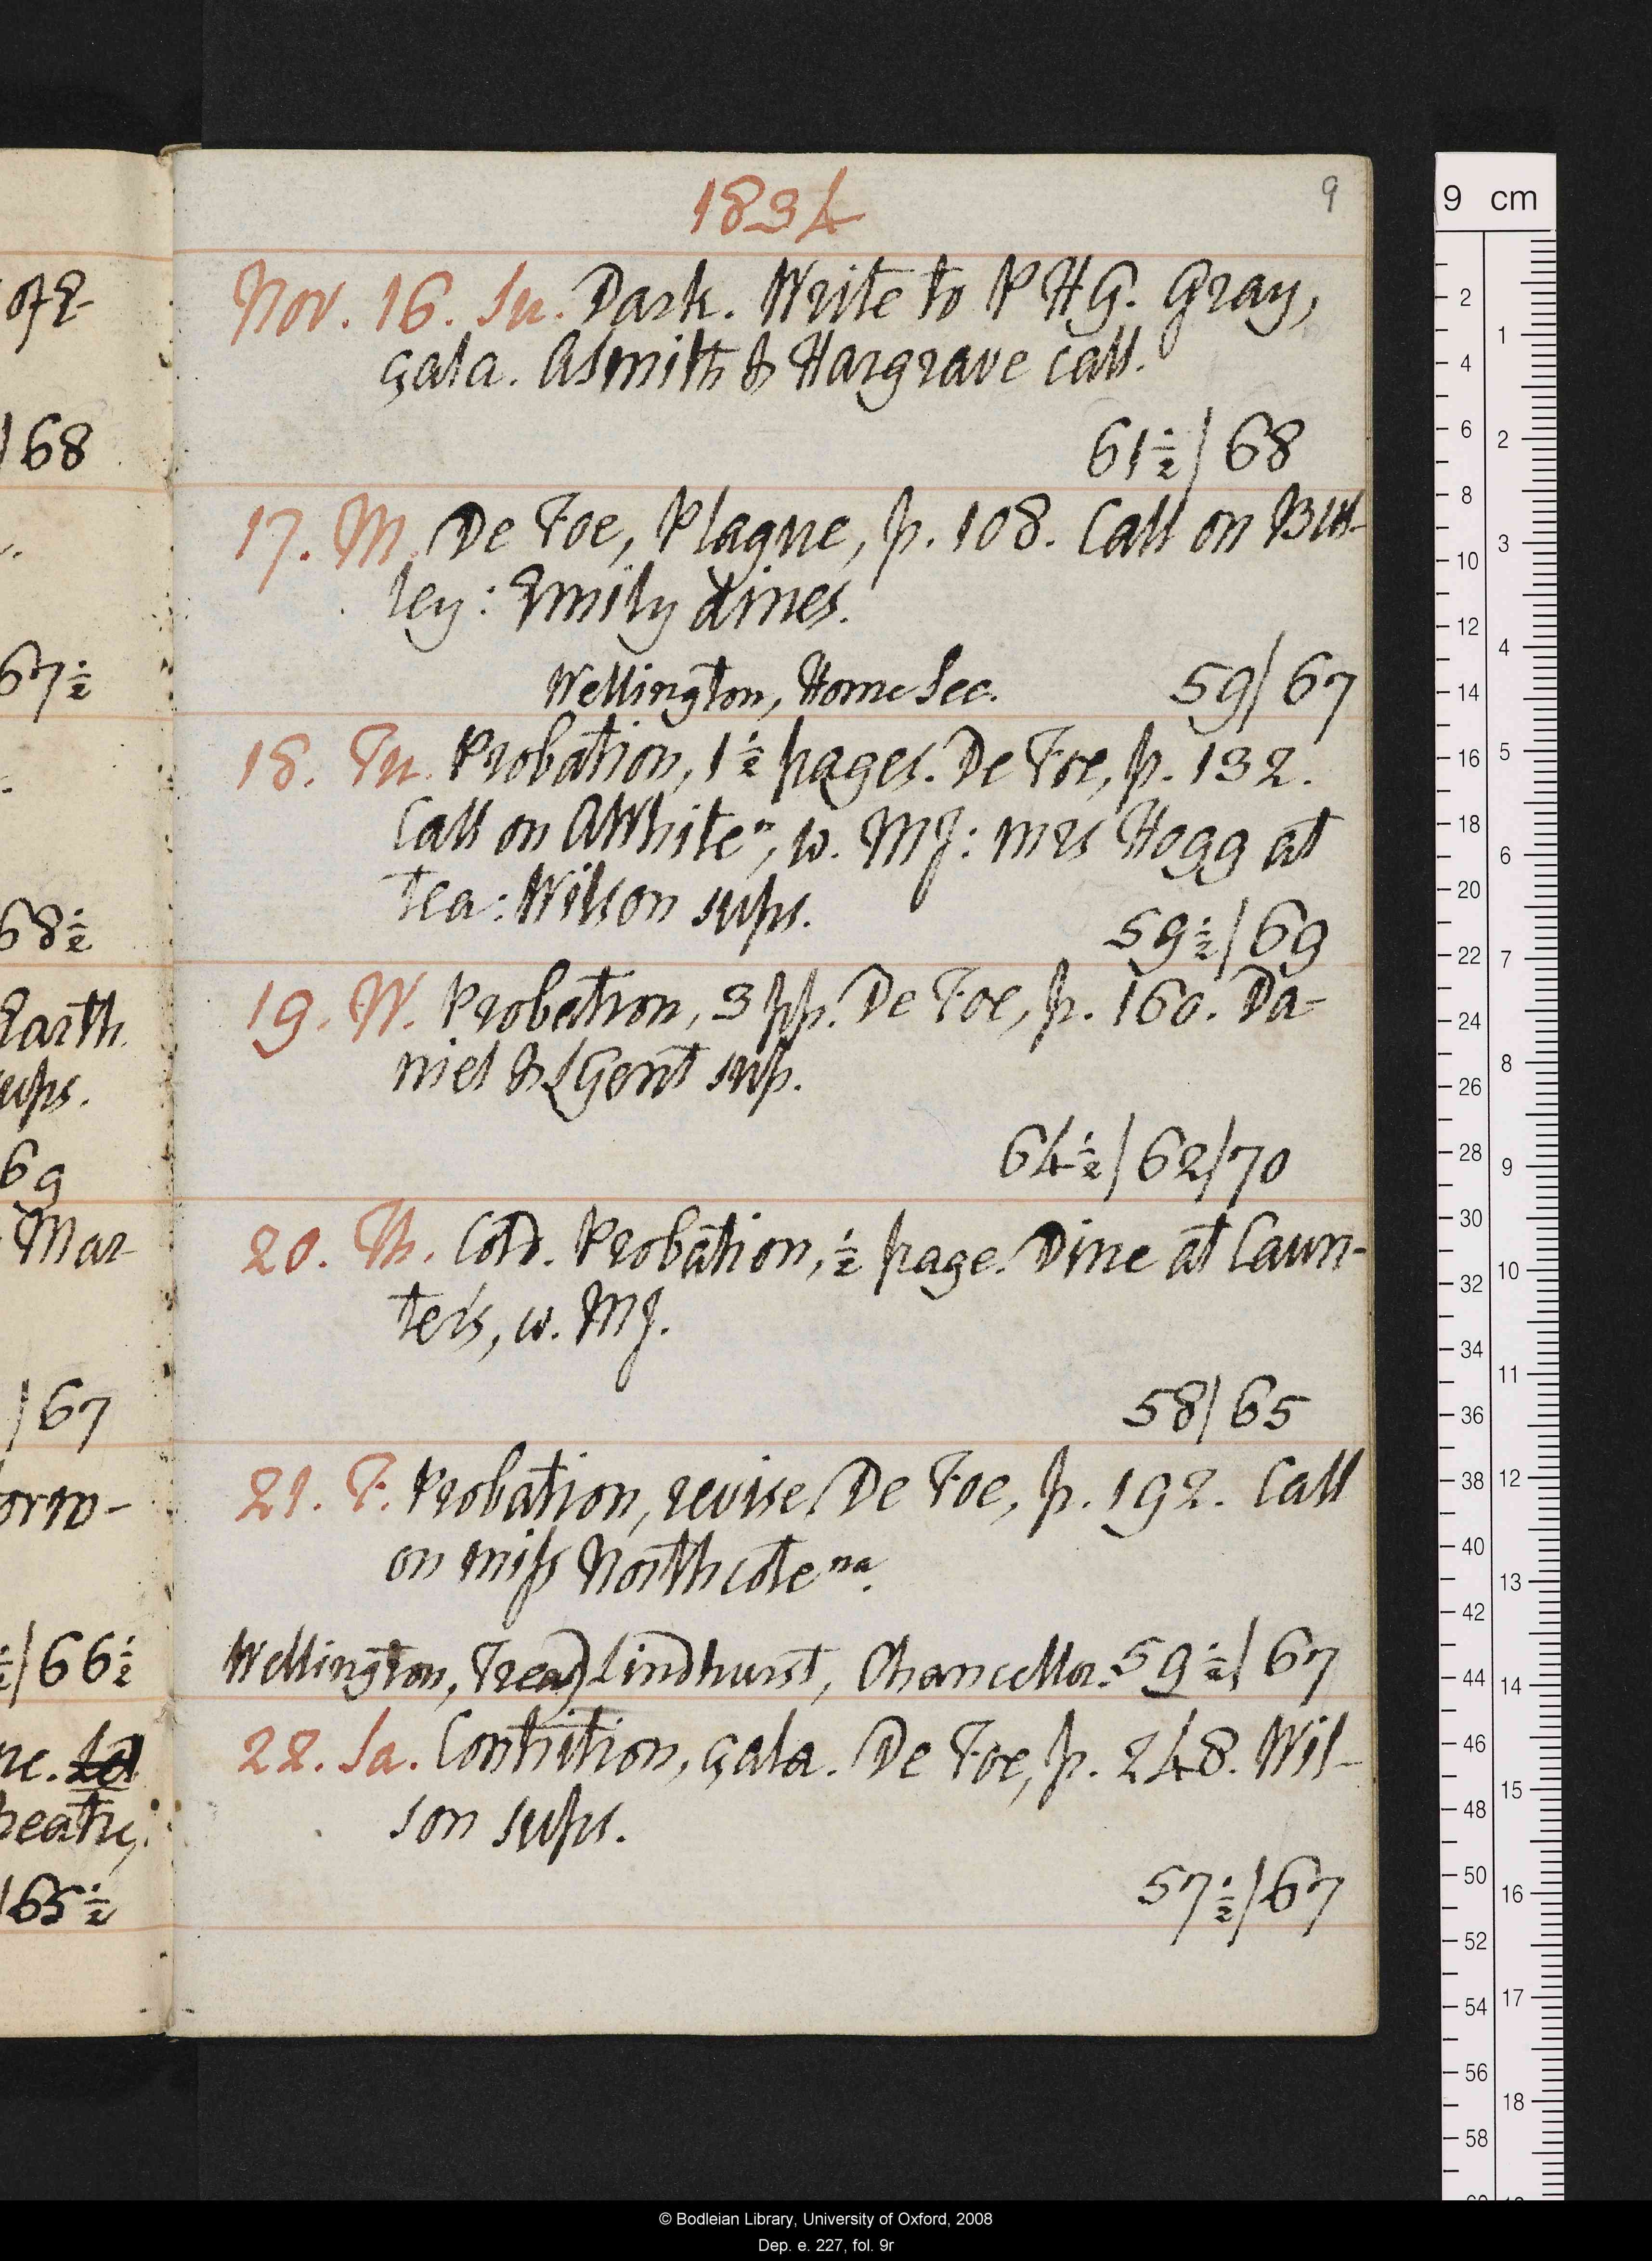 of E-
/68
67½
68½
Earth.
ups.
69
Mar-
/67
orro-
½/66½
ne. Ld
heatre;
/65½
1834
9
Nov. 16. Su. Dark. Write to PHG. Gray,
çala. ASmith & Hargrave call.
61½/68
17. M. De Foe, Plague, p. 108. Call on Bul-
ley: Emily dines.
Wellington, Home Sec. 59/67
18. Tu. Probation, 1½ pages. De Foe, p. 132.
Call on AWhiteⁿ, w. MJ: Mrs Hogg at
tea: Wilson sups.
59½/69
19. W. Probation, 3 pp. De Foe, p. 160. Da-
niel & LGent sup.
64½/62/70
20. Th. Cold. Probation, ½ page. Dine at Cawn-
ter's, w. MJ.
58/65
21. F. Probation, revise. De Foe, p. 192. Call
on Miss Northcote ⁿᵃ.
Wellington, Trea) Lindhurst, Chancellor. 59½/67
22. Sa. Contrition, çala. De Foe, p. 248. Wil-
son sups.
57½/67
9 cm
2
4
6
8
10
12
14
16
18
20
22
24
26
28
30
32
34
36
38
40
42
44
46
48
50
52
54
56
58
1
2
3
4
5
6
7
8
9
10
11
12
13
14
15
16
17
18
© Bodleian Library, University of Oxford, 2008
Dep. e. 227, fol. 9r